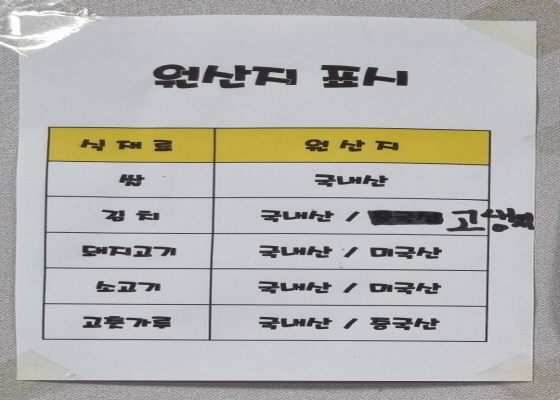 원산지 표시
식재료 원산지
쌀 국내산
김치 국내산 /
돼지고기 국내산 / 미국산
소고기 국내산 / 미국산
고춧가루 국내산 / 중국산